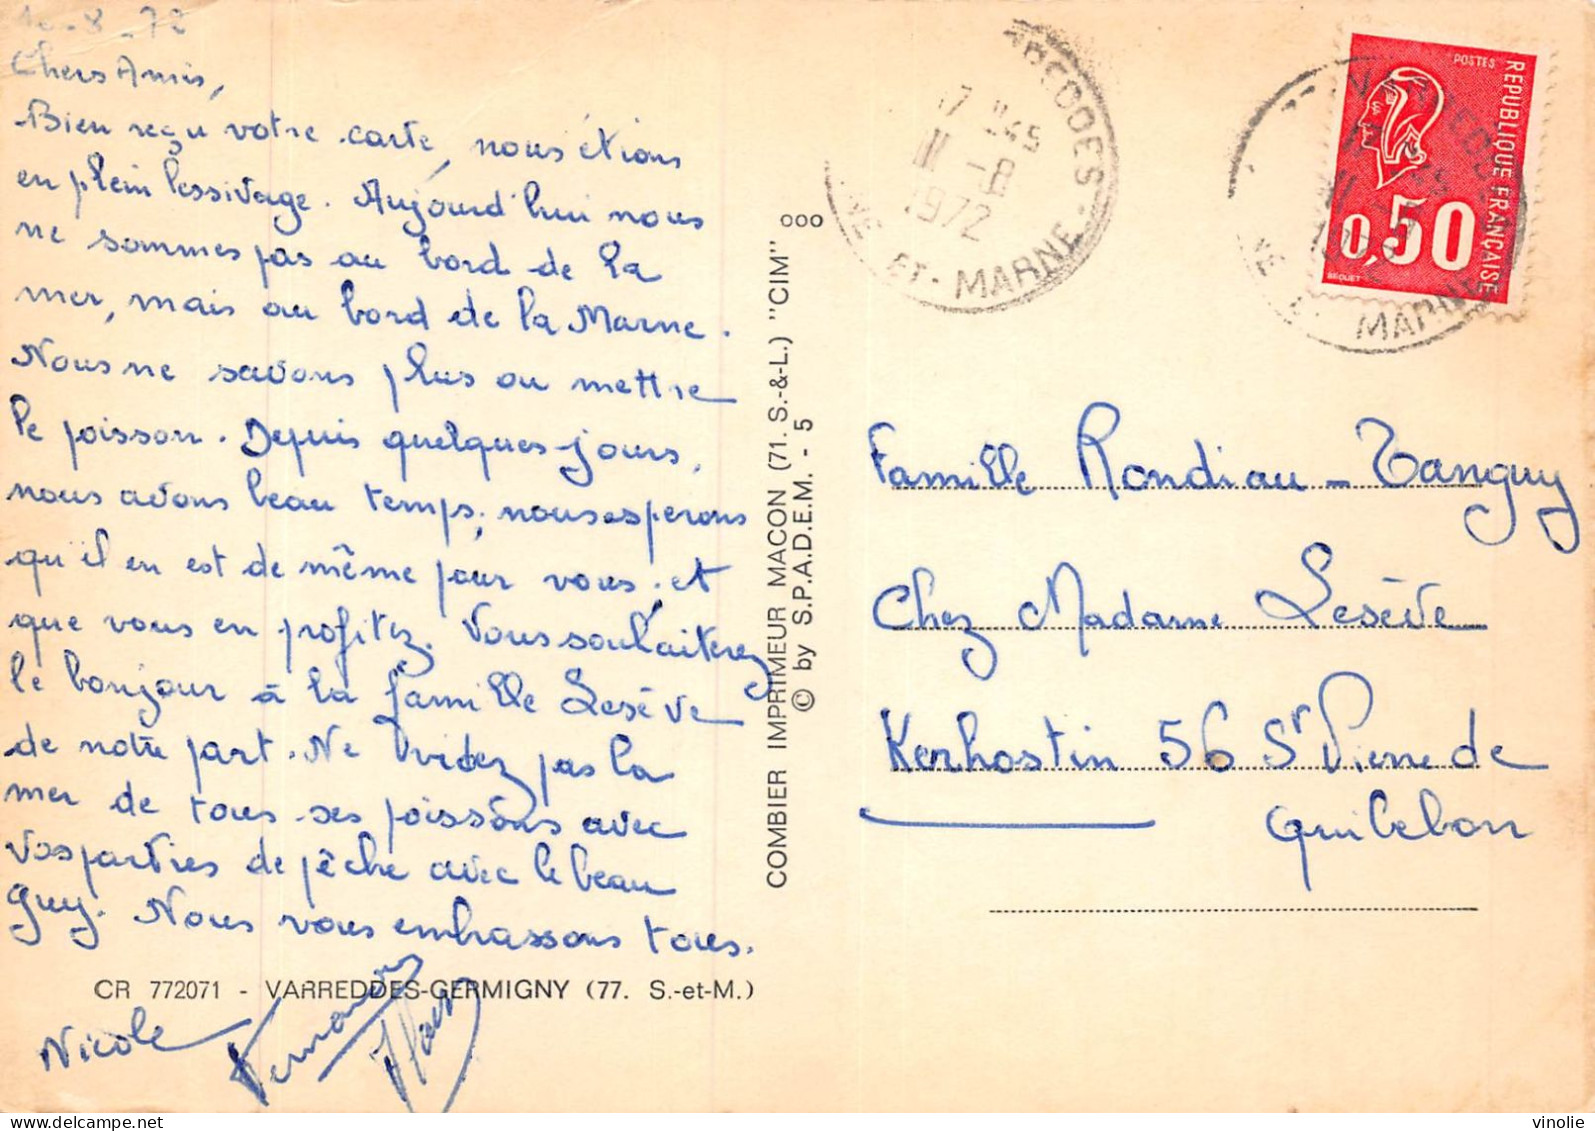 10-8-72
Chers Amis,
Bien reçu votre carte, nous étions
en plein lessivage. Aujourd'hui nous
ne sommes pas au bord de la
mer, mais au bord de la Marne.
Nous ne savons plus ou mettre
le poisson. Depuis quelques jours,
nous avons beau temps, nous esperons
qu'il en est de même pour vous, et
que vous en profitez. Vous souhaiterez
le bonjour à la famille Lesève
de notre part. Ne videz pas la
mer de tous ses poissons avec
vos parties de pêche avec le beau
Guy. Nous vous embrassons tous.
CR 772071 - VARREDDES-GERMIGNY (77. S.-et-M.)
Nicole
COMBIER IMPRIMEUR MACON (71. S.-&-L.) "CIM"
© by S.P.A.D.E.M. - 5
ooo
17 H45
11 -8
1972
NE ET-MARNE
POSTES
RÉPUBLIQUE FRANÇAISE
0,50
BEQUET
Famille Rondiau-Tanguy
Chez Madame Lesève
Kerhostin 56 St Pierre de
Quilebon
vinolie